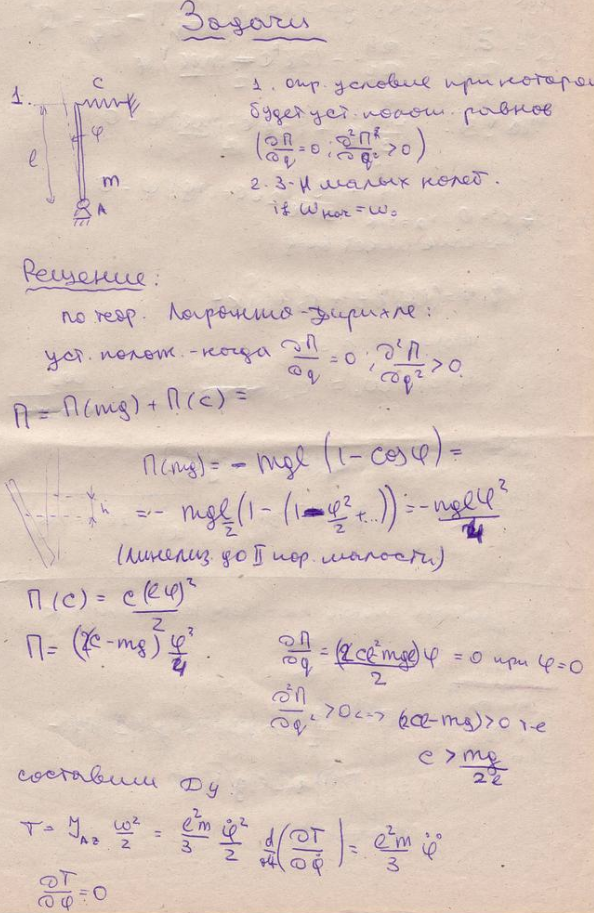 Задачи
1.
c
φ
l
m
A
1. опр. условие при которой
будет уст. полож. равнов
(∂П/∂q = 0 ; ∂²П/∂q² > 0)
2. З-н малых колеб.
if ω нач = ω₀
Решение:
по теор. Лагранжа-Дирихле:
уст. полож. - когда ∂П/∂q = 0 ; ∂²П/∂q² > 0.
П = П(mg) + П(c) =
П(mg) = - mgl (1 - cosφ) =
h
= - mgl/2 (1 - (1 - φ²/2 + ...)) = - mglφ²/4
(линеализ. до II пор. малости)
П(c) = c(lφ)²/2
П = (2c - mg) φ²/4
∂П/∂q = (2cl² mgl)/2 φ = 0 при φ = 0
∂²П/∂q² > 0 <-> (2cl - mg) > 0 т-е
c > mg/2l
составим ДУ
T = J_Az ω²/2 = l²m/3 φ̇²/2 d/dt (∂T/∂φ̇) = l²m/3 φ̈
∂T/∂φ = 0